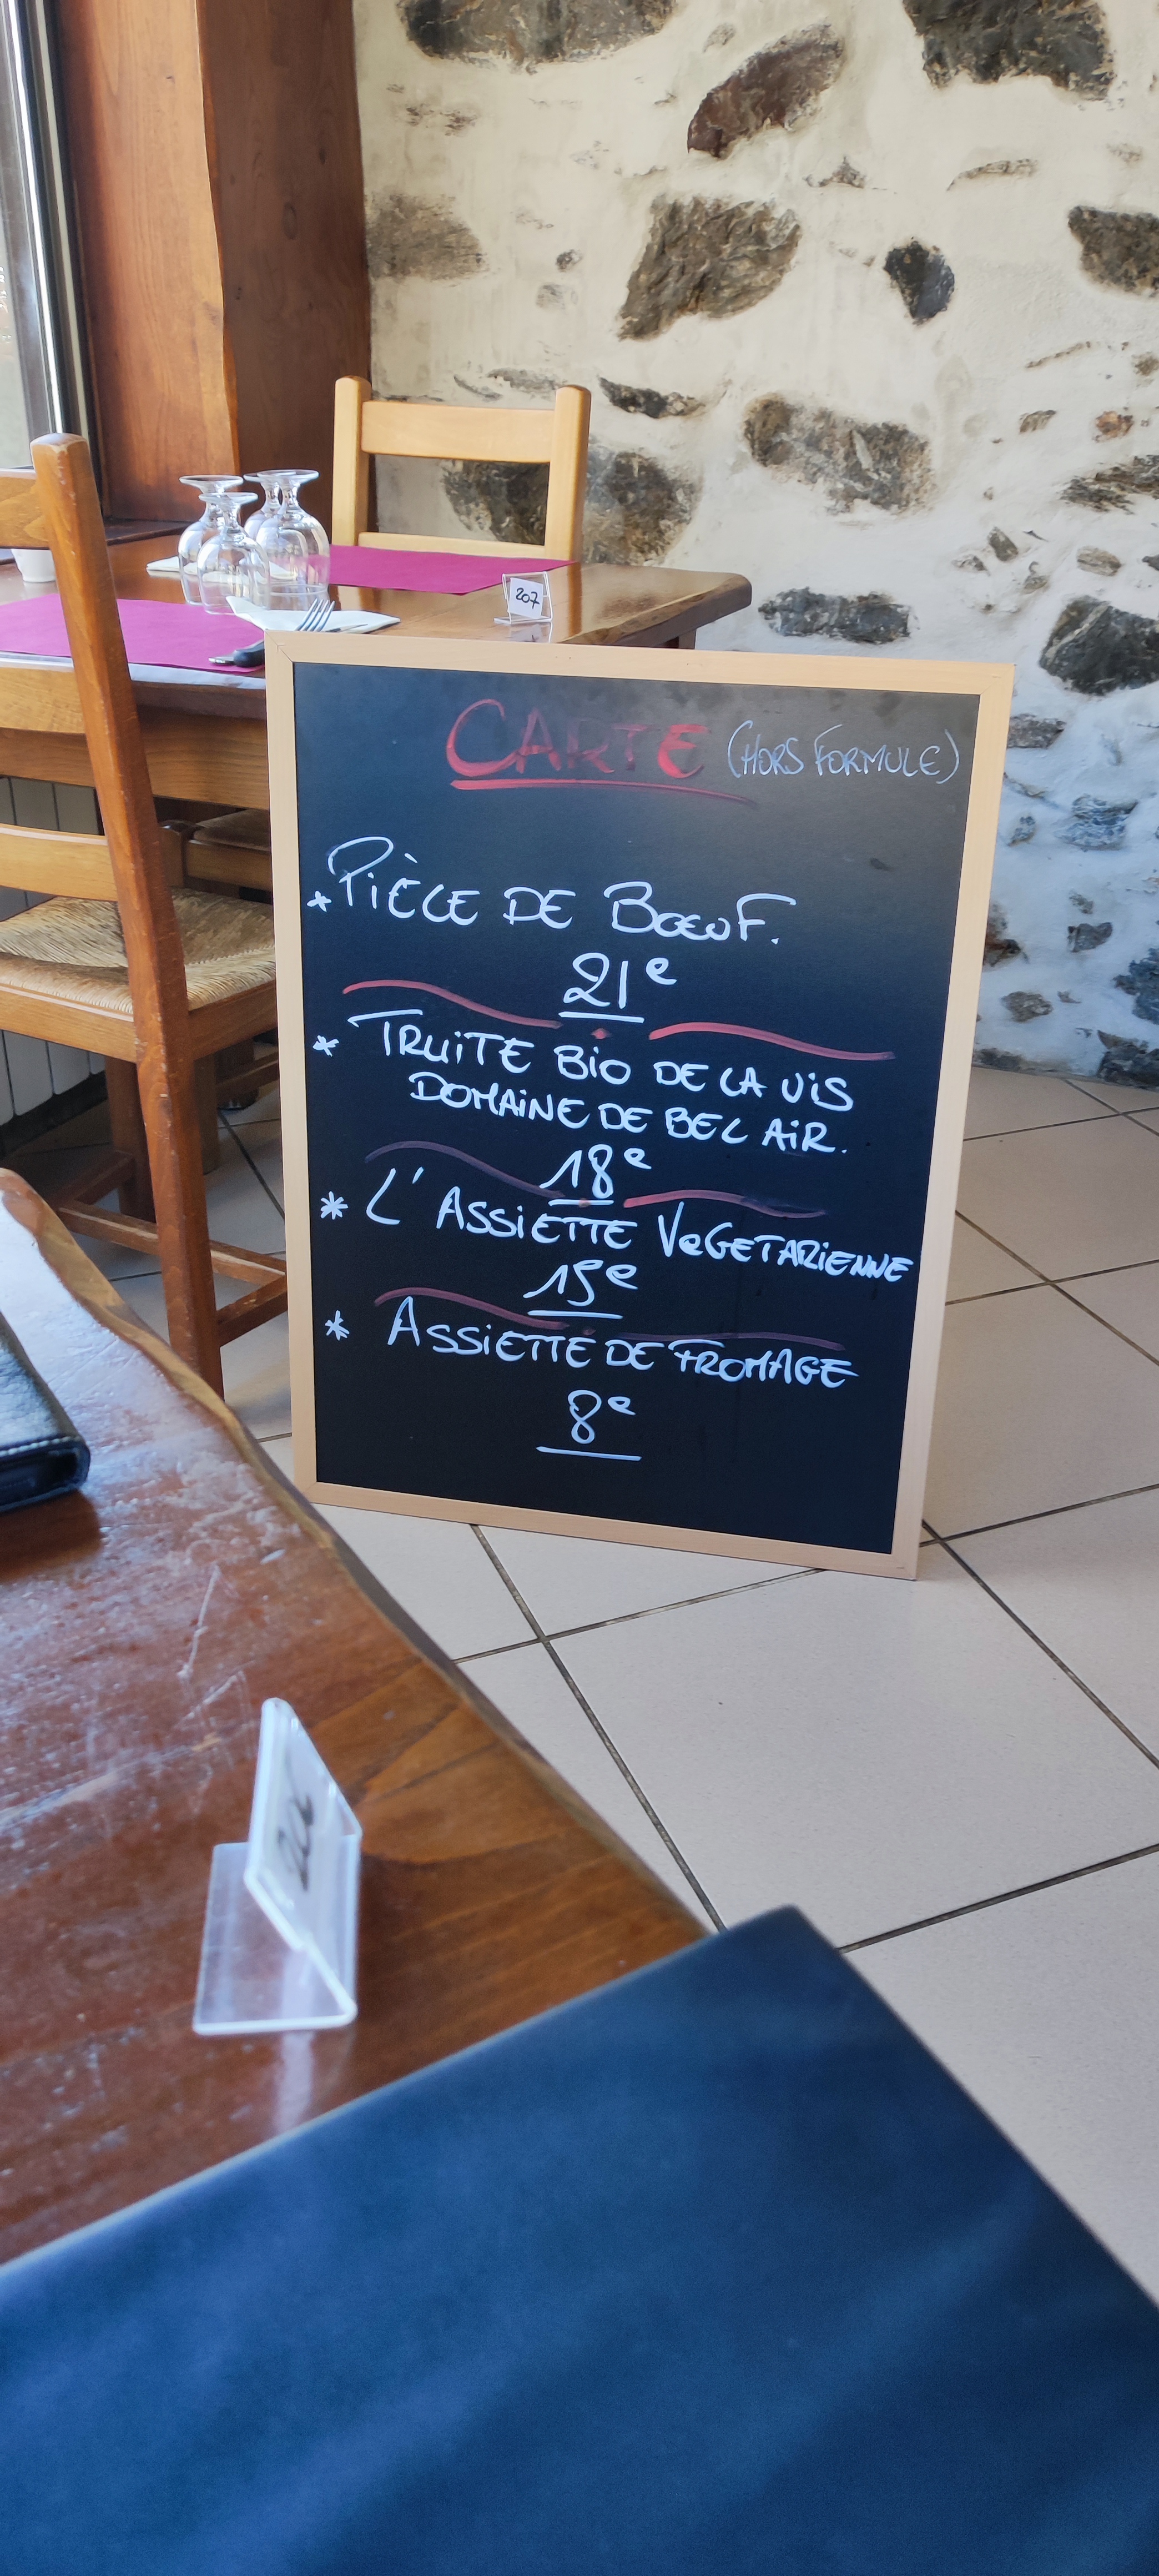 207
CARTE (HORS FORMULE)
* PIÈCE DE BŒUF.
21e
* TRUITE BIO DE LA VIS
DOMAINE DE BEL AIR.
18e
* L'ASSIETTE VeGETARIENNE
15e
* ASSIETTE DE FROMAGE
8e